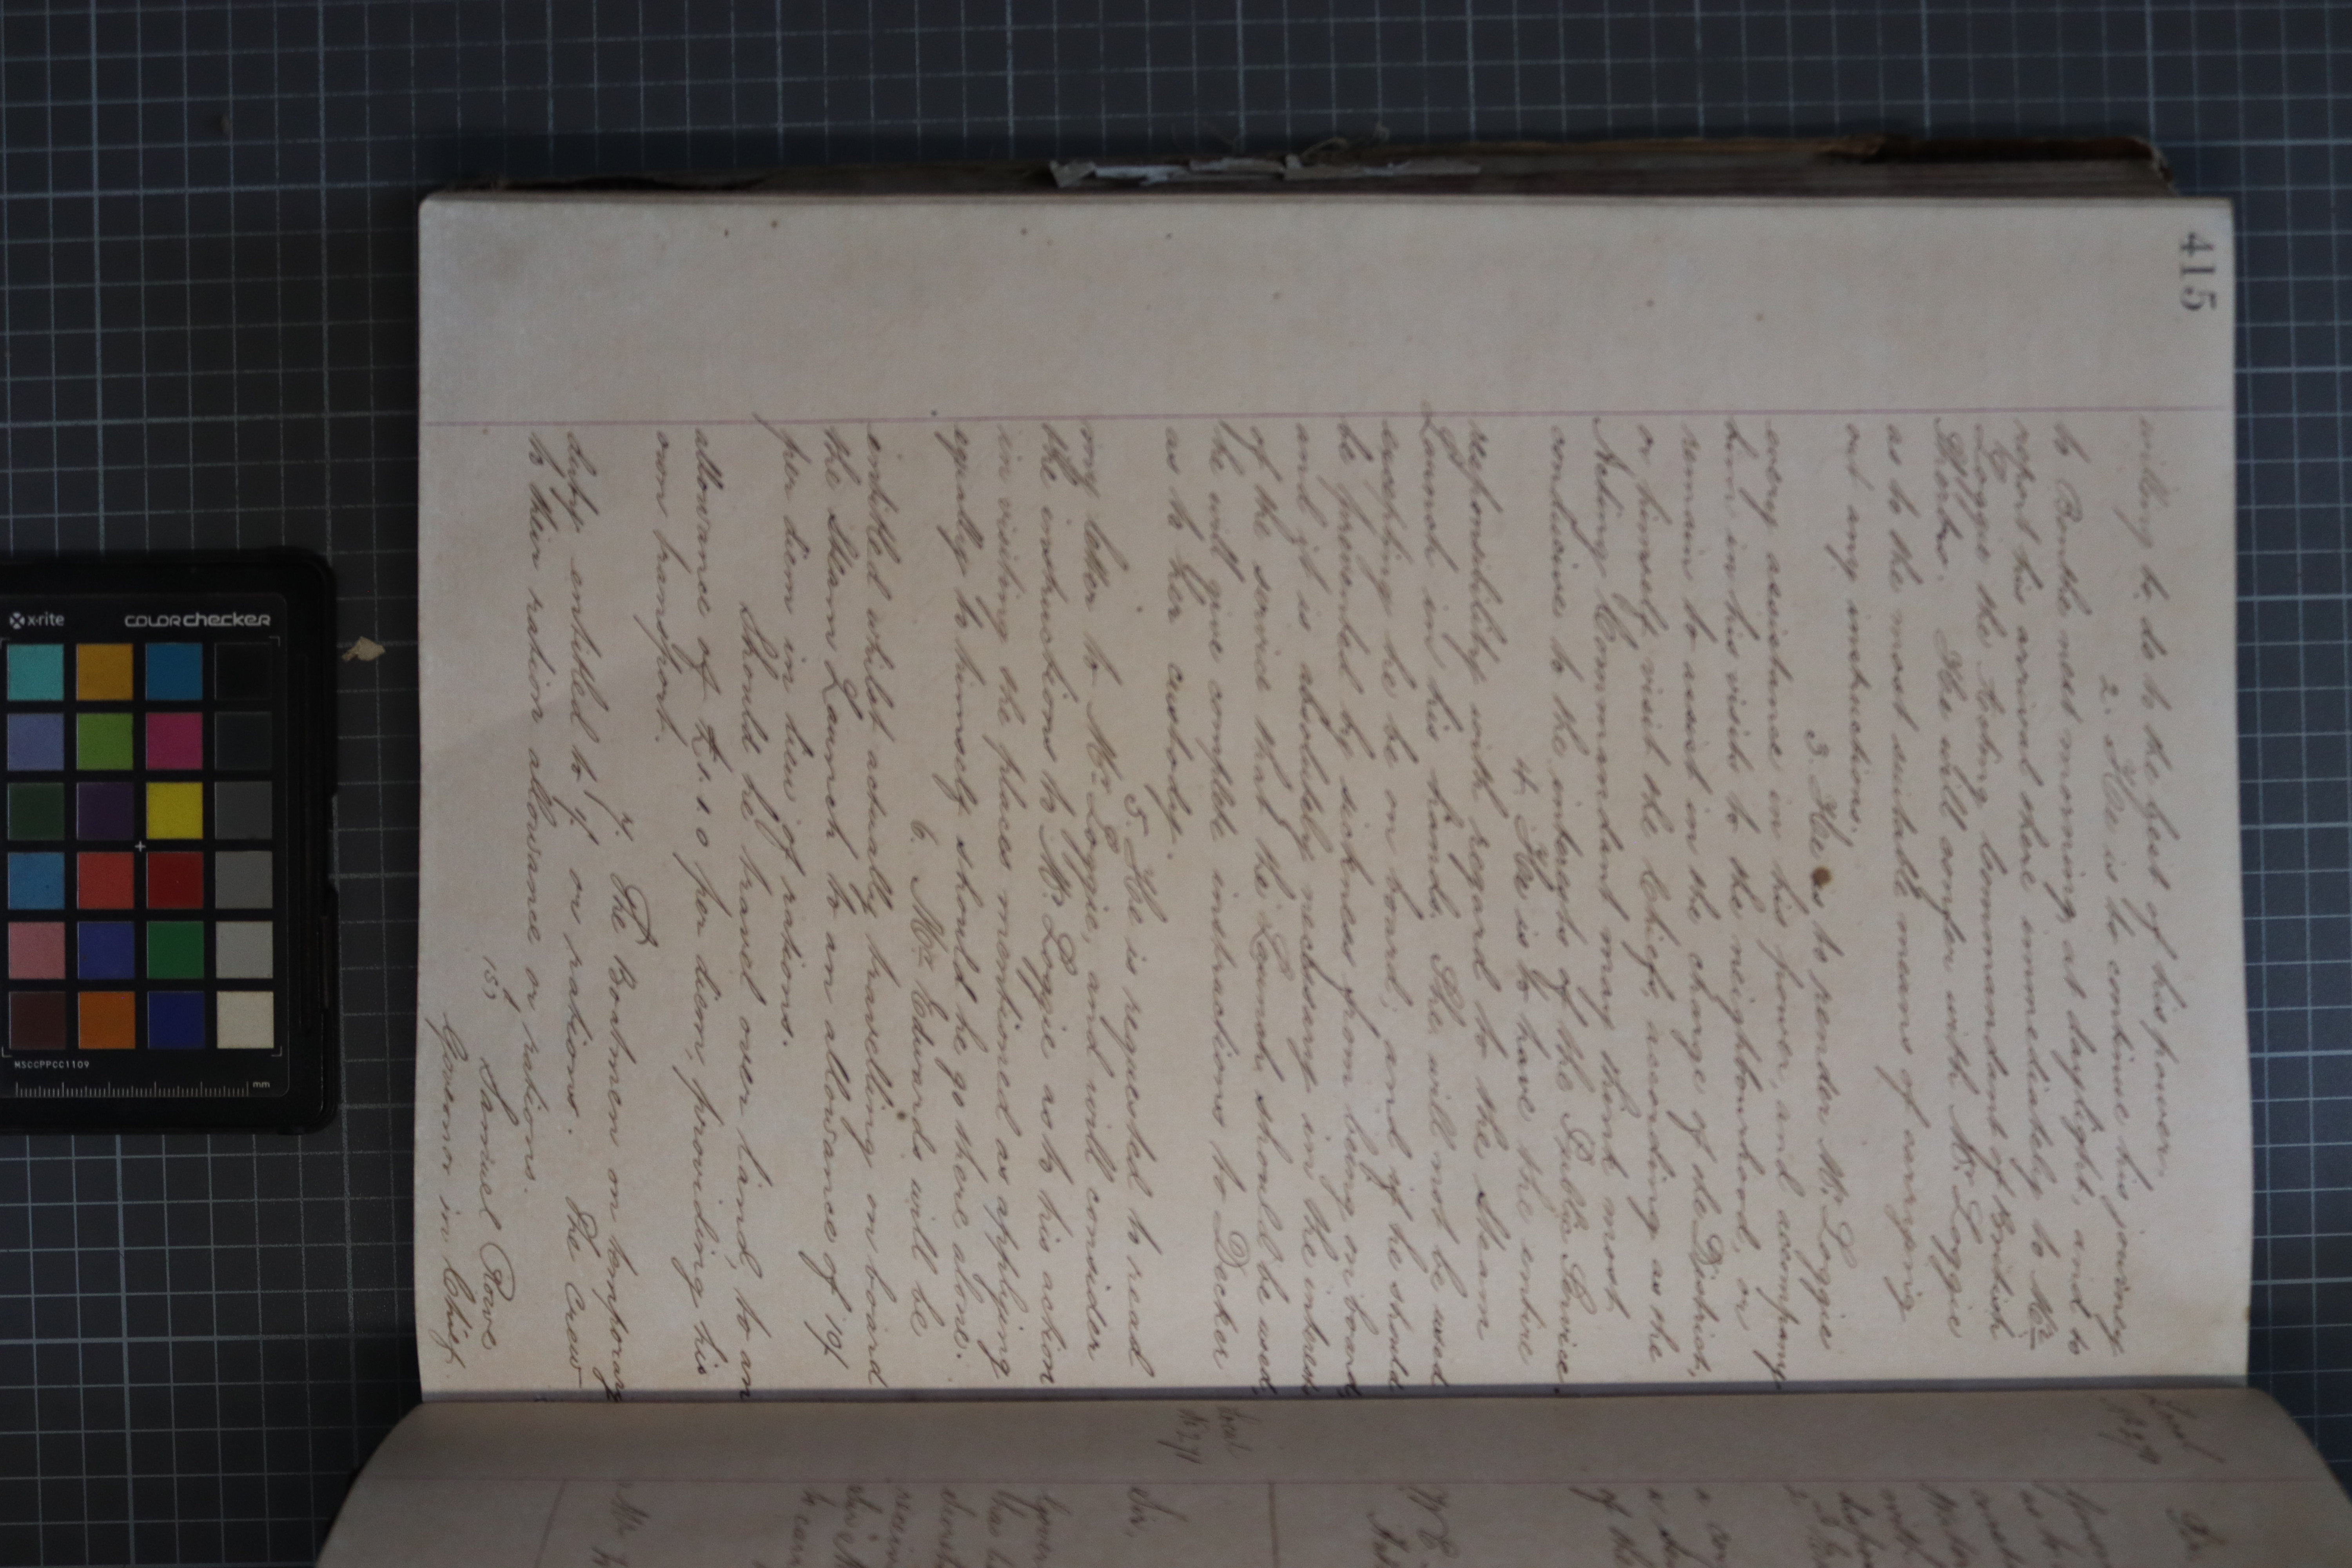 415
willing to do to the best of his power.
2. He is to continue his journey
to Bonthe next morning, at daylight, and to
report his arrival there immediately to Mr
Loggie the Acting Commandant of British
Sherbro. He will confer with Mr. Loggie
as to the most suitable means of carrying
out any instructions.
3. He is to render Mr. Loggie
every assistance in his power, and accompany
him in his visits to the neighbourhood, or
remain to assist in the charge of the District,
or himself visit the Chiefs, according as the
Acting Commandant may think most
conducive to the interests of the Public Service.
4. He is to have the entire
responsibility with regard to the Steam
Launch in his hands. She will not be used
excepting he be on board; and if he should
be prevented by sickness from being on board
and it is absolutely necessary in the interests
of the service that the Launch should be used,
he will give complete instructions to Decker
as to her custody.
5. He is requested to read
my letter to Mr Loggie, and will consider
the instructions to Mr. Loggie as to his action
in visiting the places mentioned as applying
equally to himself should he go there alone.
6. Mr Edwards will be
entitled whilst actually travelling on board
the Steam Launch to an allowance of 19/
per diem in lieu of rations.
Should he travel over land, to an
allowance of £1.1.0 per diem, providing his
own transport.
7. The Boatmen on temporary
duty entitled to 9d or rations. The Crew
to their ration allowance or rations.
Samuel Rowe
Governor in Chief.
Sir,
x-rite
colorchecker
MSCCPPCC1109
mm